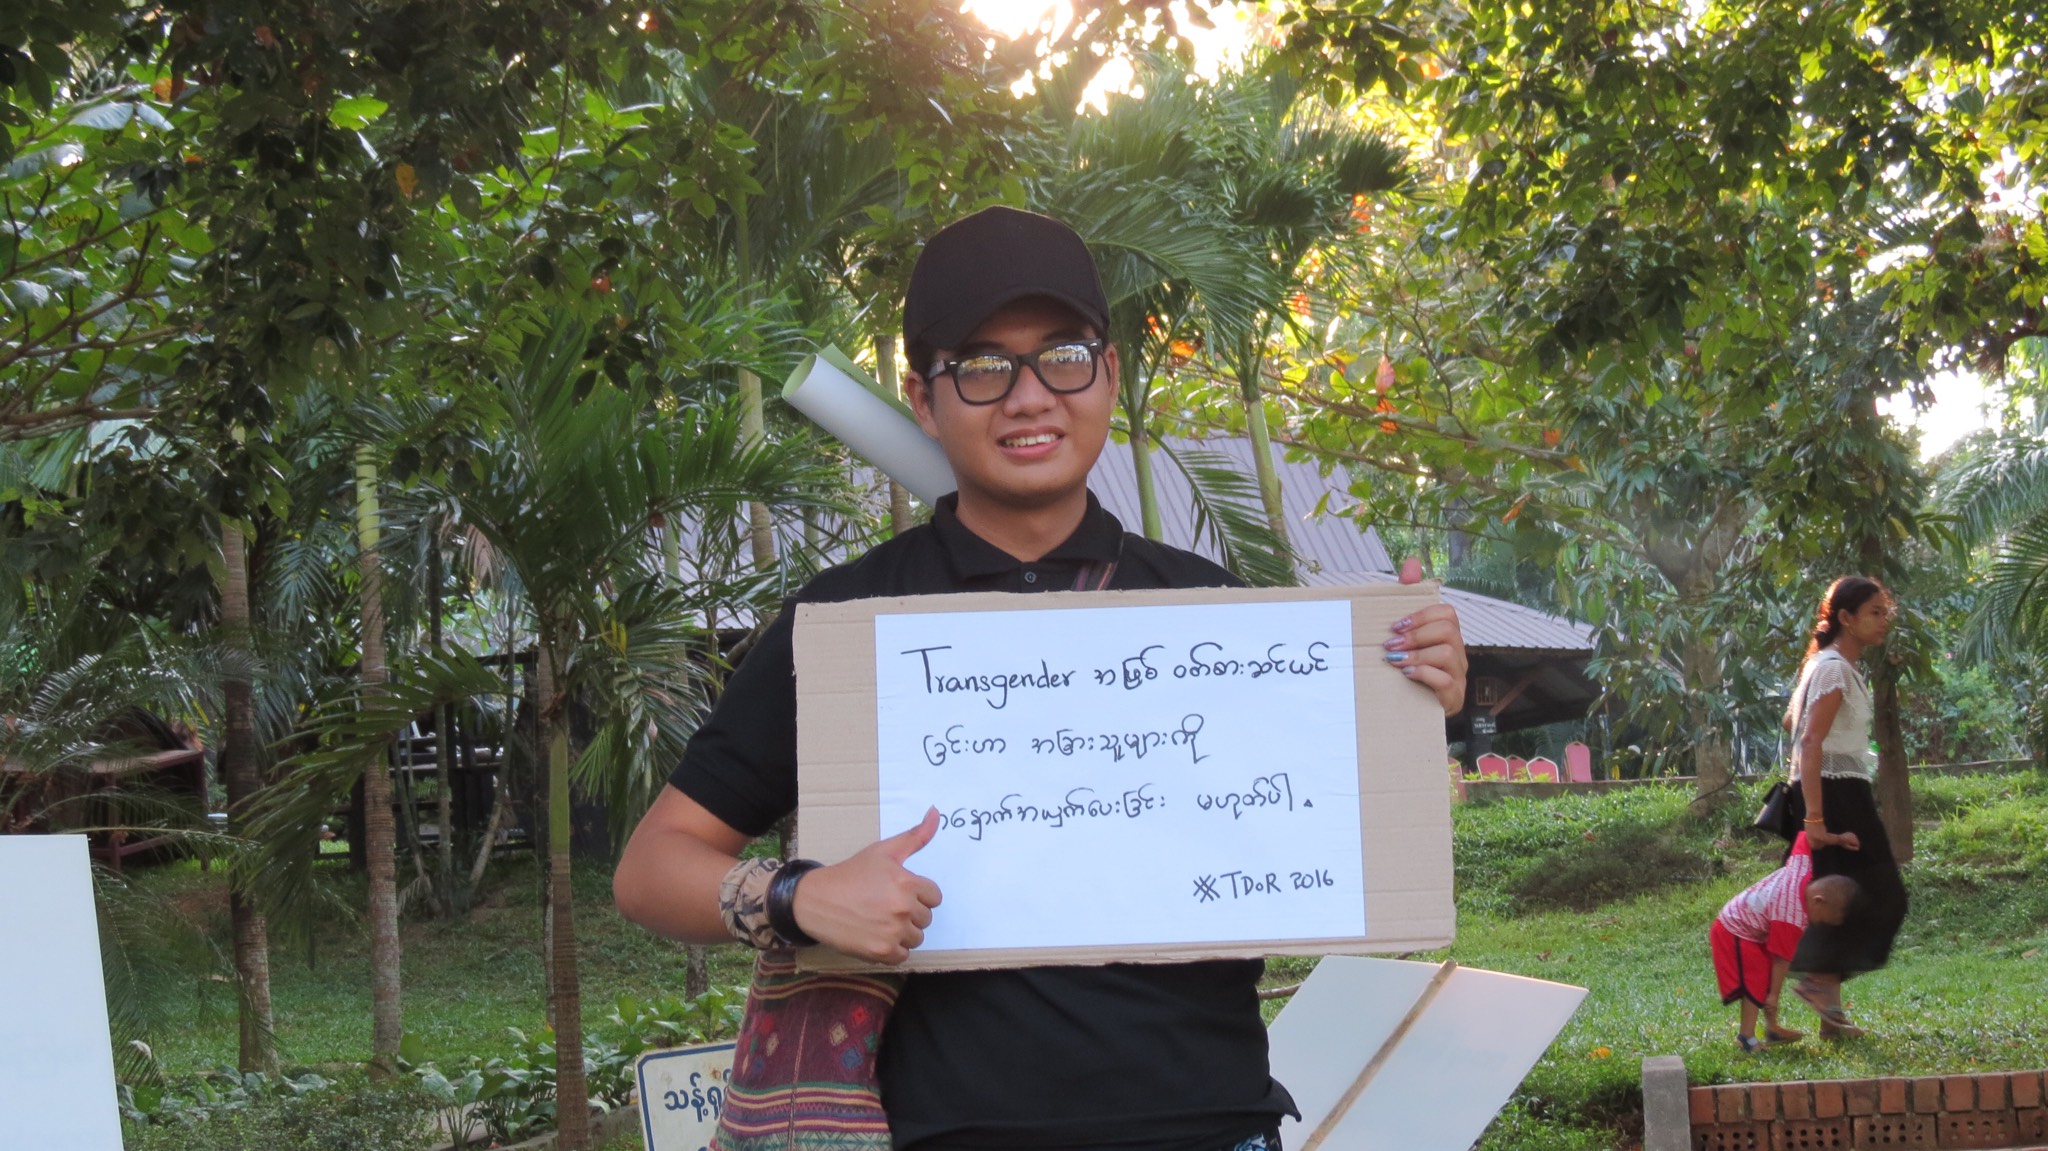 Transgender အဖြစ် ဝတ်စားဆင်ယင်
ခြင်းဟာ အခြားသူများကို
အနှောက်အယှက်ပေးခြင်း မဟုတ်ပါ။
#TDoR 2016